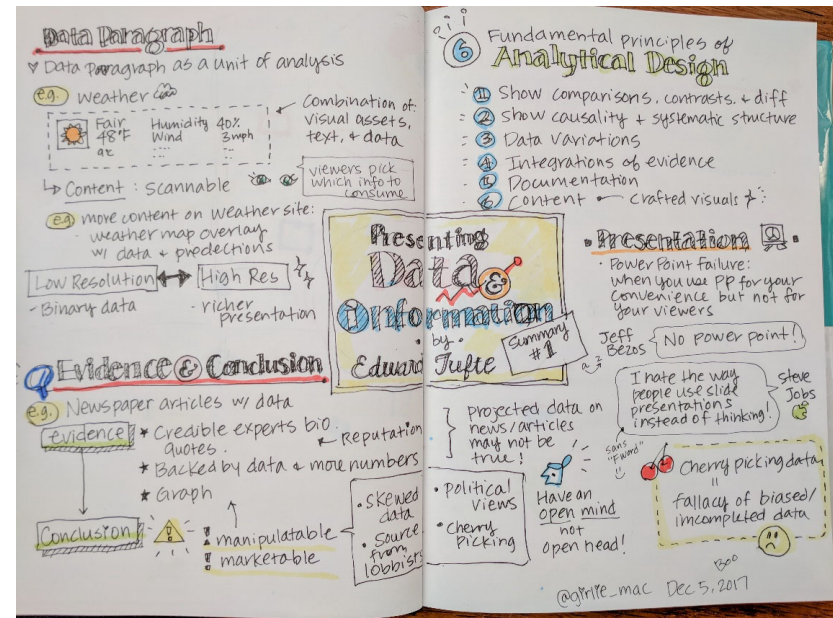 Data Paragraph
Data Paragraph as a unit of analysis
e.g. weather
Fair
48°F
Humidity 40%
Wind 3mph
Combination of
visual assets,
text, & data
Content : Scannable
viewers pick
which info to
consume
e.g more content on weather site:
- weather map overlay
w/ data & predections
Low Resolution
High Res
- Binary data
- richer
presentation
Evidence & Conclusion
e.g. Newspaper articles w/ data
evidence
Credible experts bio
quotes.
Reputation
Backed by data & more numbers
Graph
Conclusion
! manipulatable
! marketable
• Skewed
data
• Source
from
lobbists
Presenting
Data &
Information
• by •
Edward Tufte
Summary
#1
6 Fundamental principles of
Analytical Design
1 Show comparisons, contrasts, & diff
2 Show causality + systematic structure
3 Data Variations
4 Integrations of evidence
5 Documentation
6 Content
crafted visuals
• Presentation •
• PowerPoint failure:
when you use PP for your
convenience but not for
your viewers
Jeff
Bezos
No power point!
I hate the way
people use slide
presentations
instead of thinking!
Steve
Jobs
sans
"Fword"
projected data on
news/articles
may not be
true!
• Political
views
• Cherry
Picking
Have an
open mind
not
open head!
Cherry picking data
=
fallacy of biased/
imcompleted data
@girlie_mac Dec 5, 2017
Boo